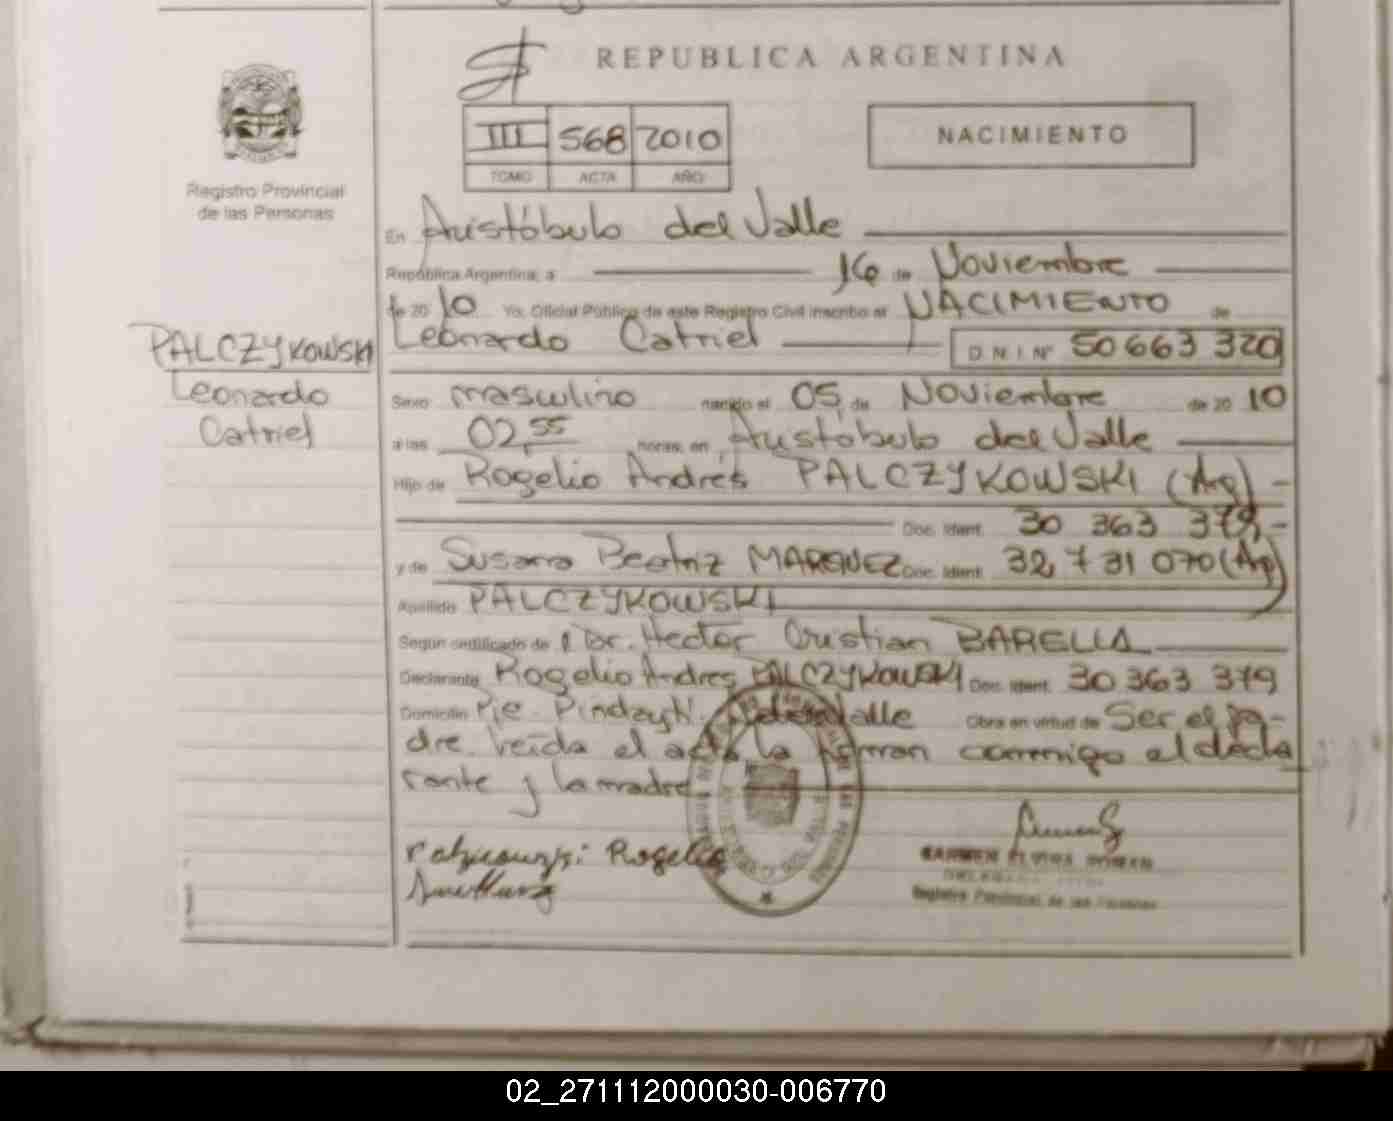 REPUBLICA ARGENTINA
III 568 2010
TOMO ACTA AÑO
NACIMIENTO
Registro Provincial
de las Personas
PALCZYKOWSKI
Leonardo
Catriel
En Aristóbulo del Valle
República Argentina, a 16 de Noviembre
de 2010 Yo, Oficial Público de este Registro Civil inscribo el NACIMIENTO de
Leonardo Catriel D.N.I Nº 50 663 320
Sexo masculino nacido el 05 de Noviembre de 2010
a las 02,55 horas, en Aristóbulo del Valle
Hijo de Rogelio Andrés PALCZYKOWSKI (Arg)
Doc. Ident. 30 363 379,-
y de Susana Beatriz MARQUEZ Doc. Ident. 32 731 070 (Arg)
Apellido PALCZYKOWSKI
Según certificado de Dr. Hector Cristian BARELLA
Declarante Rogelio Andres PALCZYKOWSKI Doc. Ident. 30 363 379
Domicilio Pje. Pindayti. A. del Valle Obra en virtud de Ser el pa-
dre. leída el acta la firman conmigo el decla
rante y la madre
Rogelio
CARMEN ELVIRA
Registro Provincial de las Personas
02_271112000030-006770